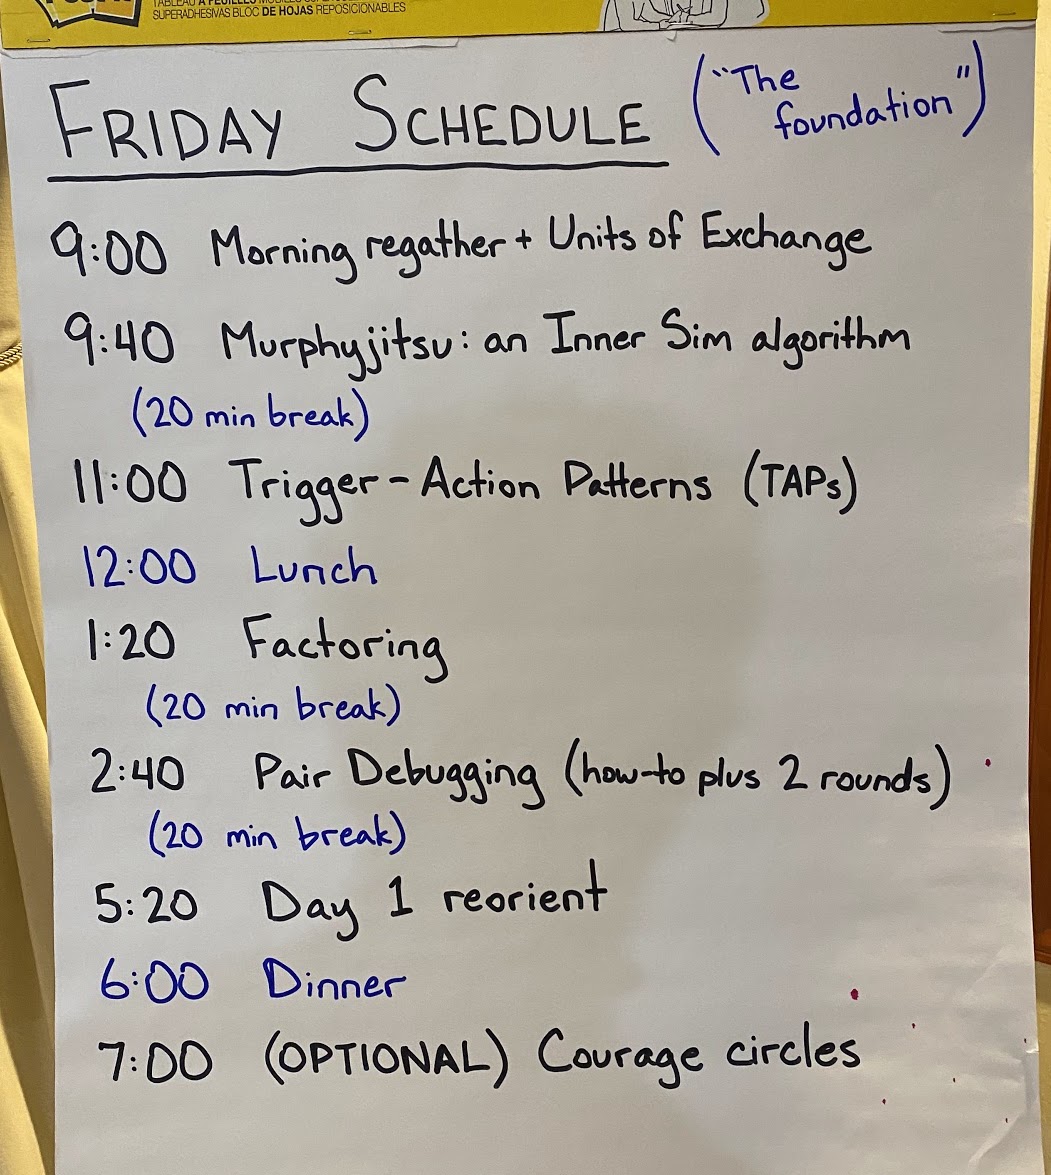 SUPERADHESIVAS BLOC DE HOJAS REPOSICIONABLES
FRIDAY SCHEDULE ("The foundation")
9:00 Morning regather + Units of Exchange
9:40 Murphyjitsu: an Inner Sim algorithm
(20 min break)
11:00 Trigger-Action Patterns (TAPs)
12:00 Lunch
1:20 Factoring
(20 min break)
2:40 Pair Debugging (how-to plus 2 rounds)
(20 min break)
5:20 Day 1 reorient
6:00 Dinner
7:00 (OPTIONAL) Courage circles